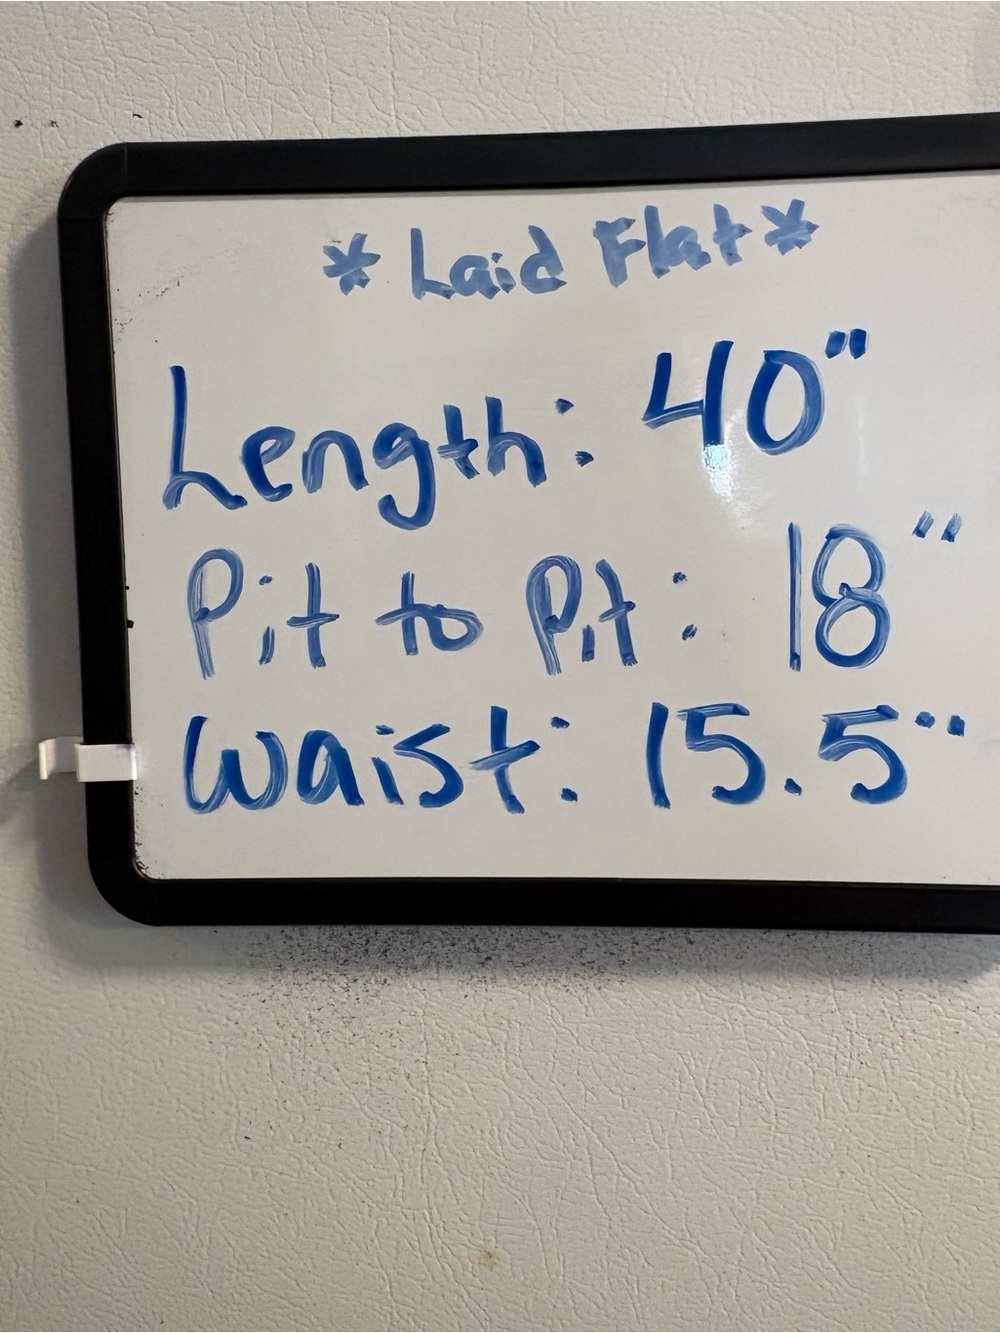 * Laid Flat *
Length: 40"
Pit to Pit: 18"
Waist: 15.5"